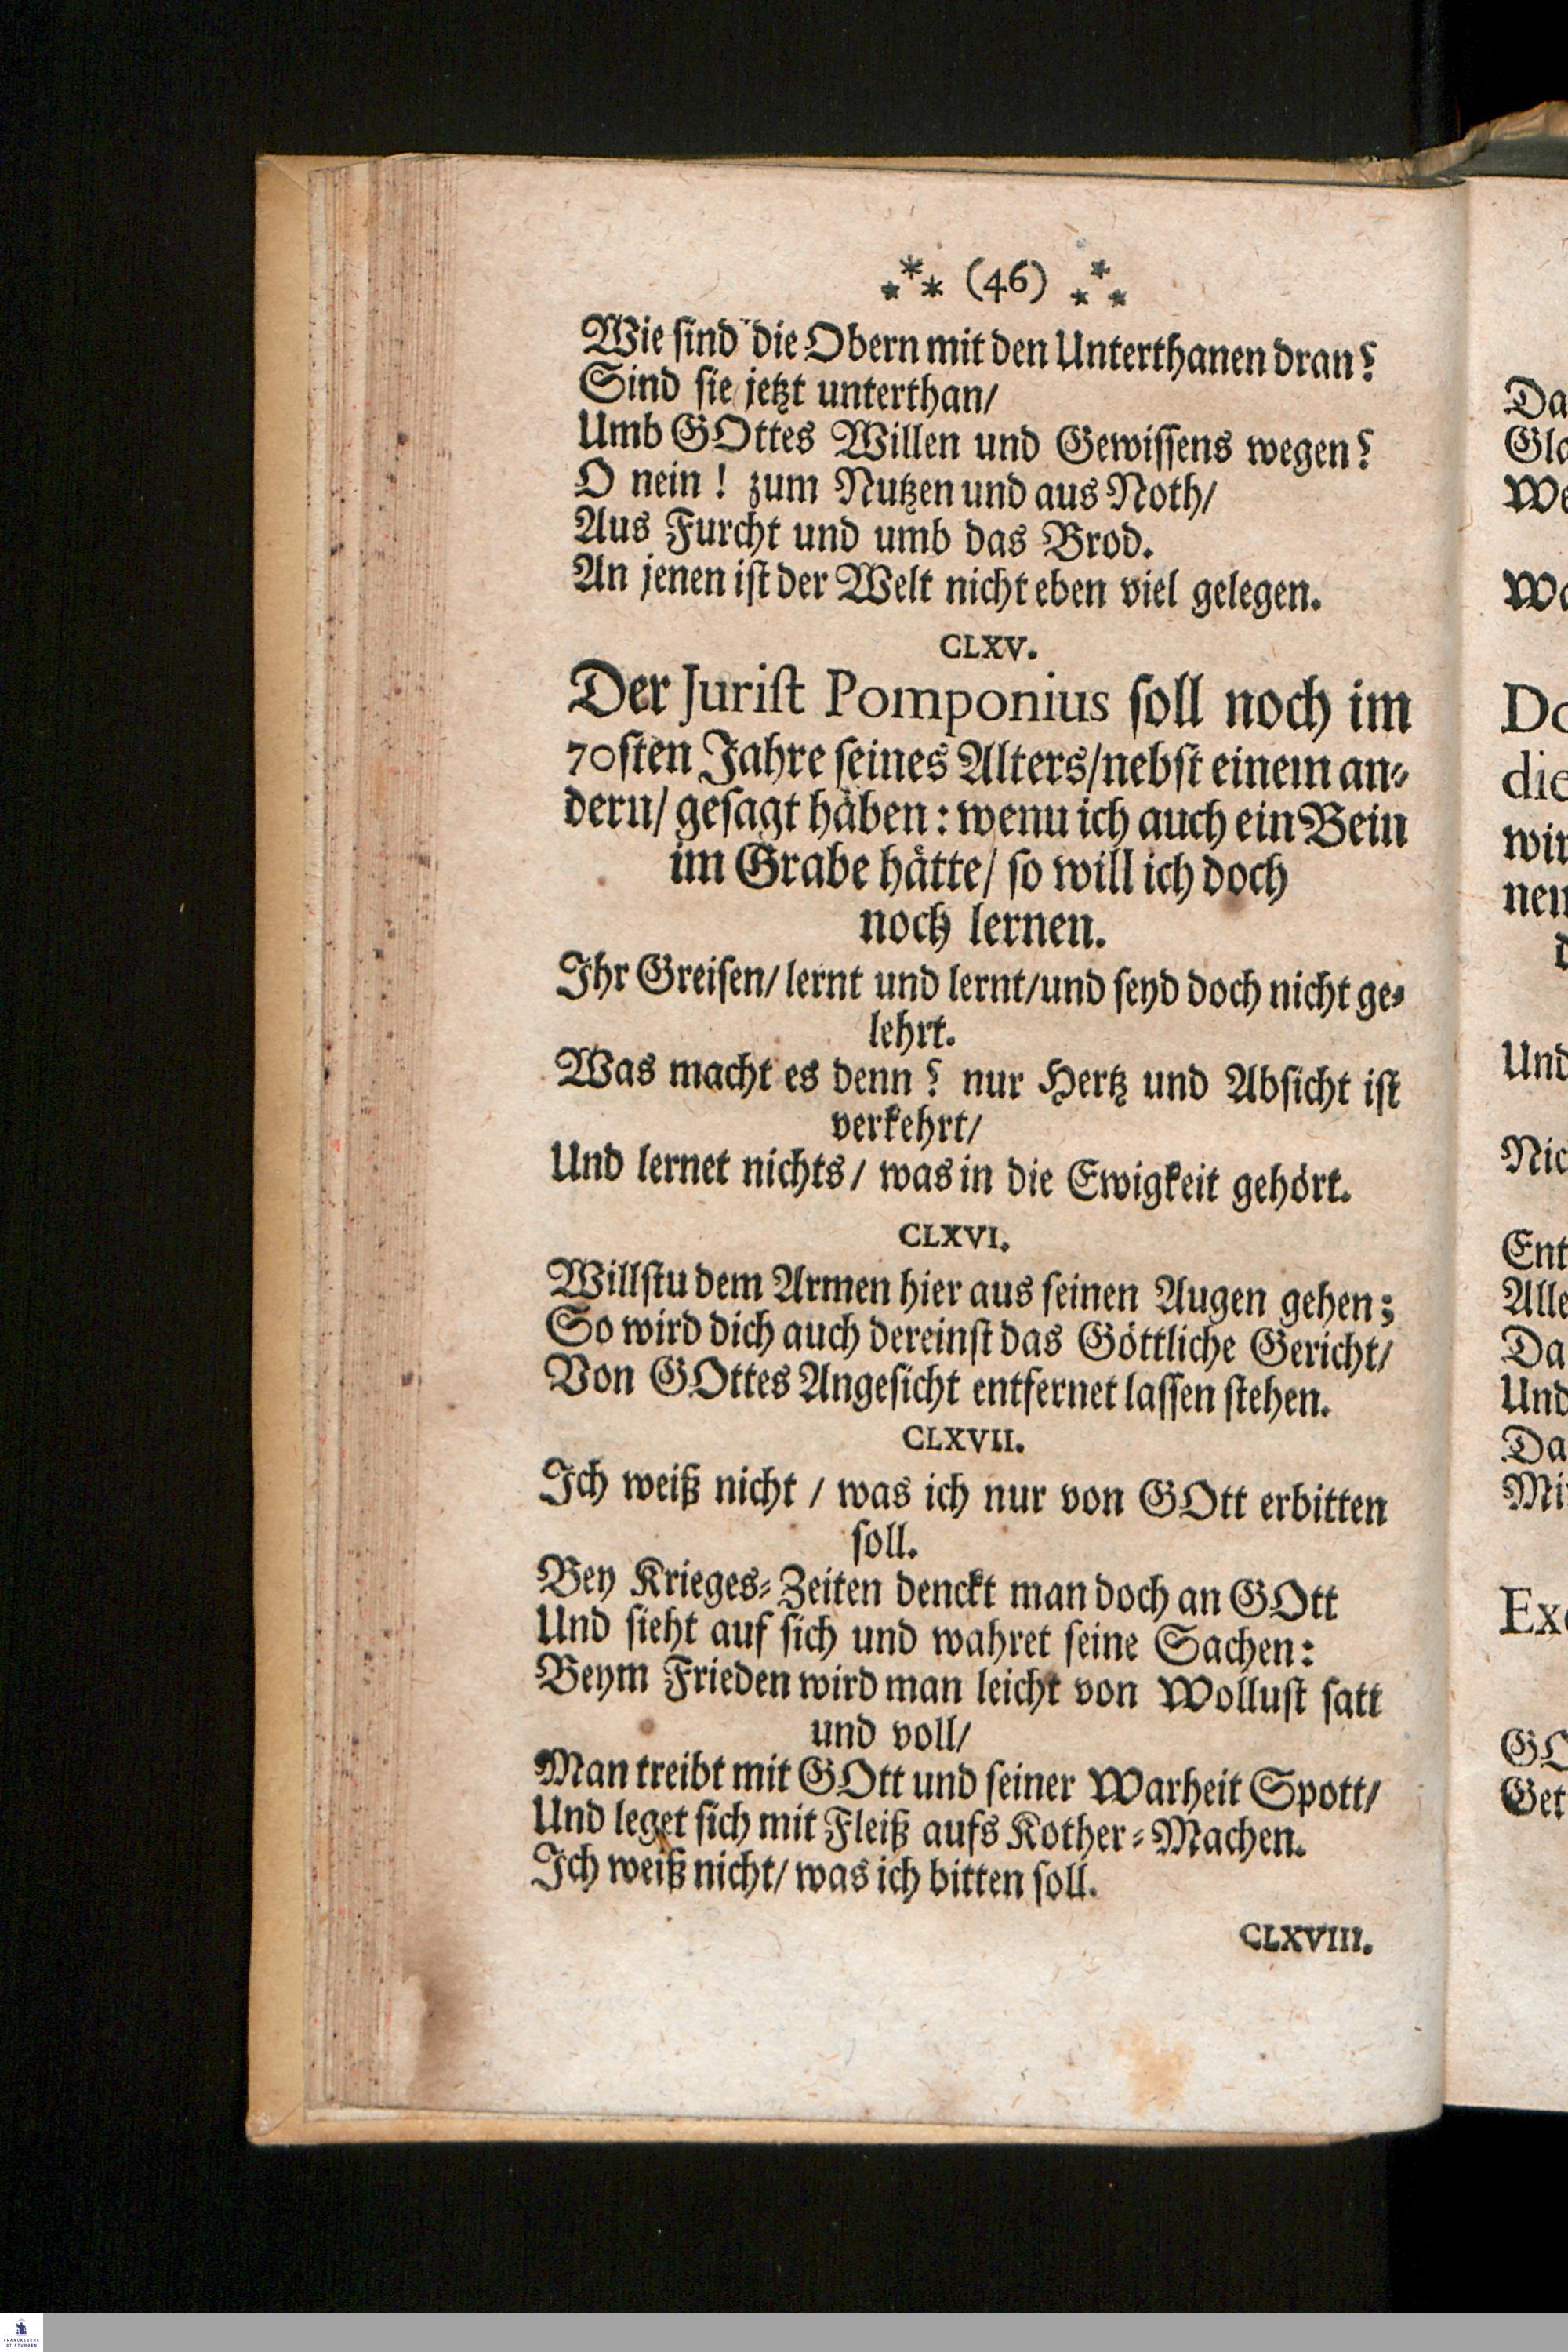 ⁂ (46) ⁂
Wie sind die Obern mit den Unterthanen dran?
Sind sie jetzt unterthan/
Umb GOttes Willen und Gewissens wegen?
O nein! zum Nutzen und aus Noth/
Aus Furcht und umb das Brod.
An jenen ist der Welt nicht eben viel gelegen.
CLXV.
Der Jurist Pomponius soll noch im
70sten Jahre seines Alters/nebst einem an-
dern/ gesagt haben: wenu ich auch ein Bein
im Grabe hätte/ so will ich doch
noch lernen.
Ihr Greisen/ lernt und lernt/und seyd doch nicht ge-
lehrt.
Was macht es denn? nur Hertz und Absicht ist
verkehrt/
Und lernet nichts/ was in die Ewigkeit gehört.
CLXVI.
Willstu dem Armen hier aus seinen Augen gehen;
So wird dich auch dereinst das Göttliche Gericht/
Von GOttes Angesicht entfernet lassen stehen.
CLXVII.
Ich weiß nicht / was ich nur von GOtt erbitten
soll.
Bey Krieges-Zeiten denckt man doch an GOtt
Und sieht auf sich und wahret seine Sachen:
Beym Frieden wird man leicht von Wollust satt
und voll/
Man treibt mit GOtt und seiner Warheit Spott/
Und leget sich mit Fleiß aufs Kother-Machen.
Ich weiß nicht/ was ich bitten soll.
CLXVIII.
Da
Gla
We
Wa
Do
die
wir
nen
d
Und
Nic
Ent
Alle
Da
Und
Da
Mi
Exc
GO
Get
FRANCKESCHE
STIFTUNGEN